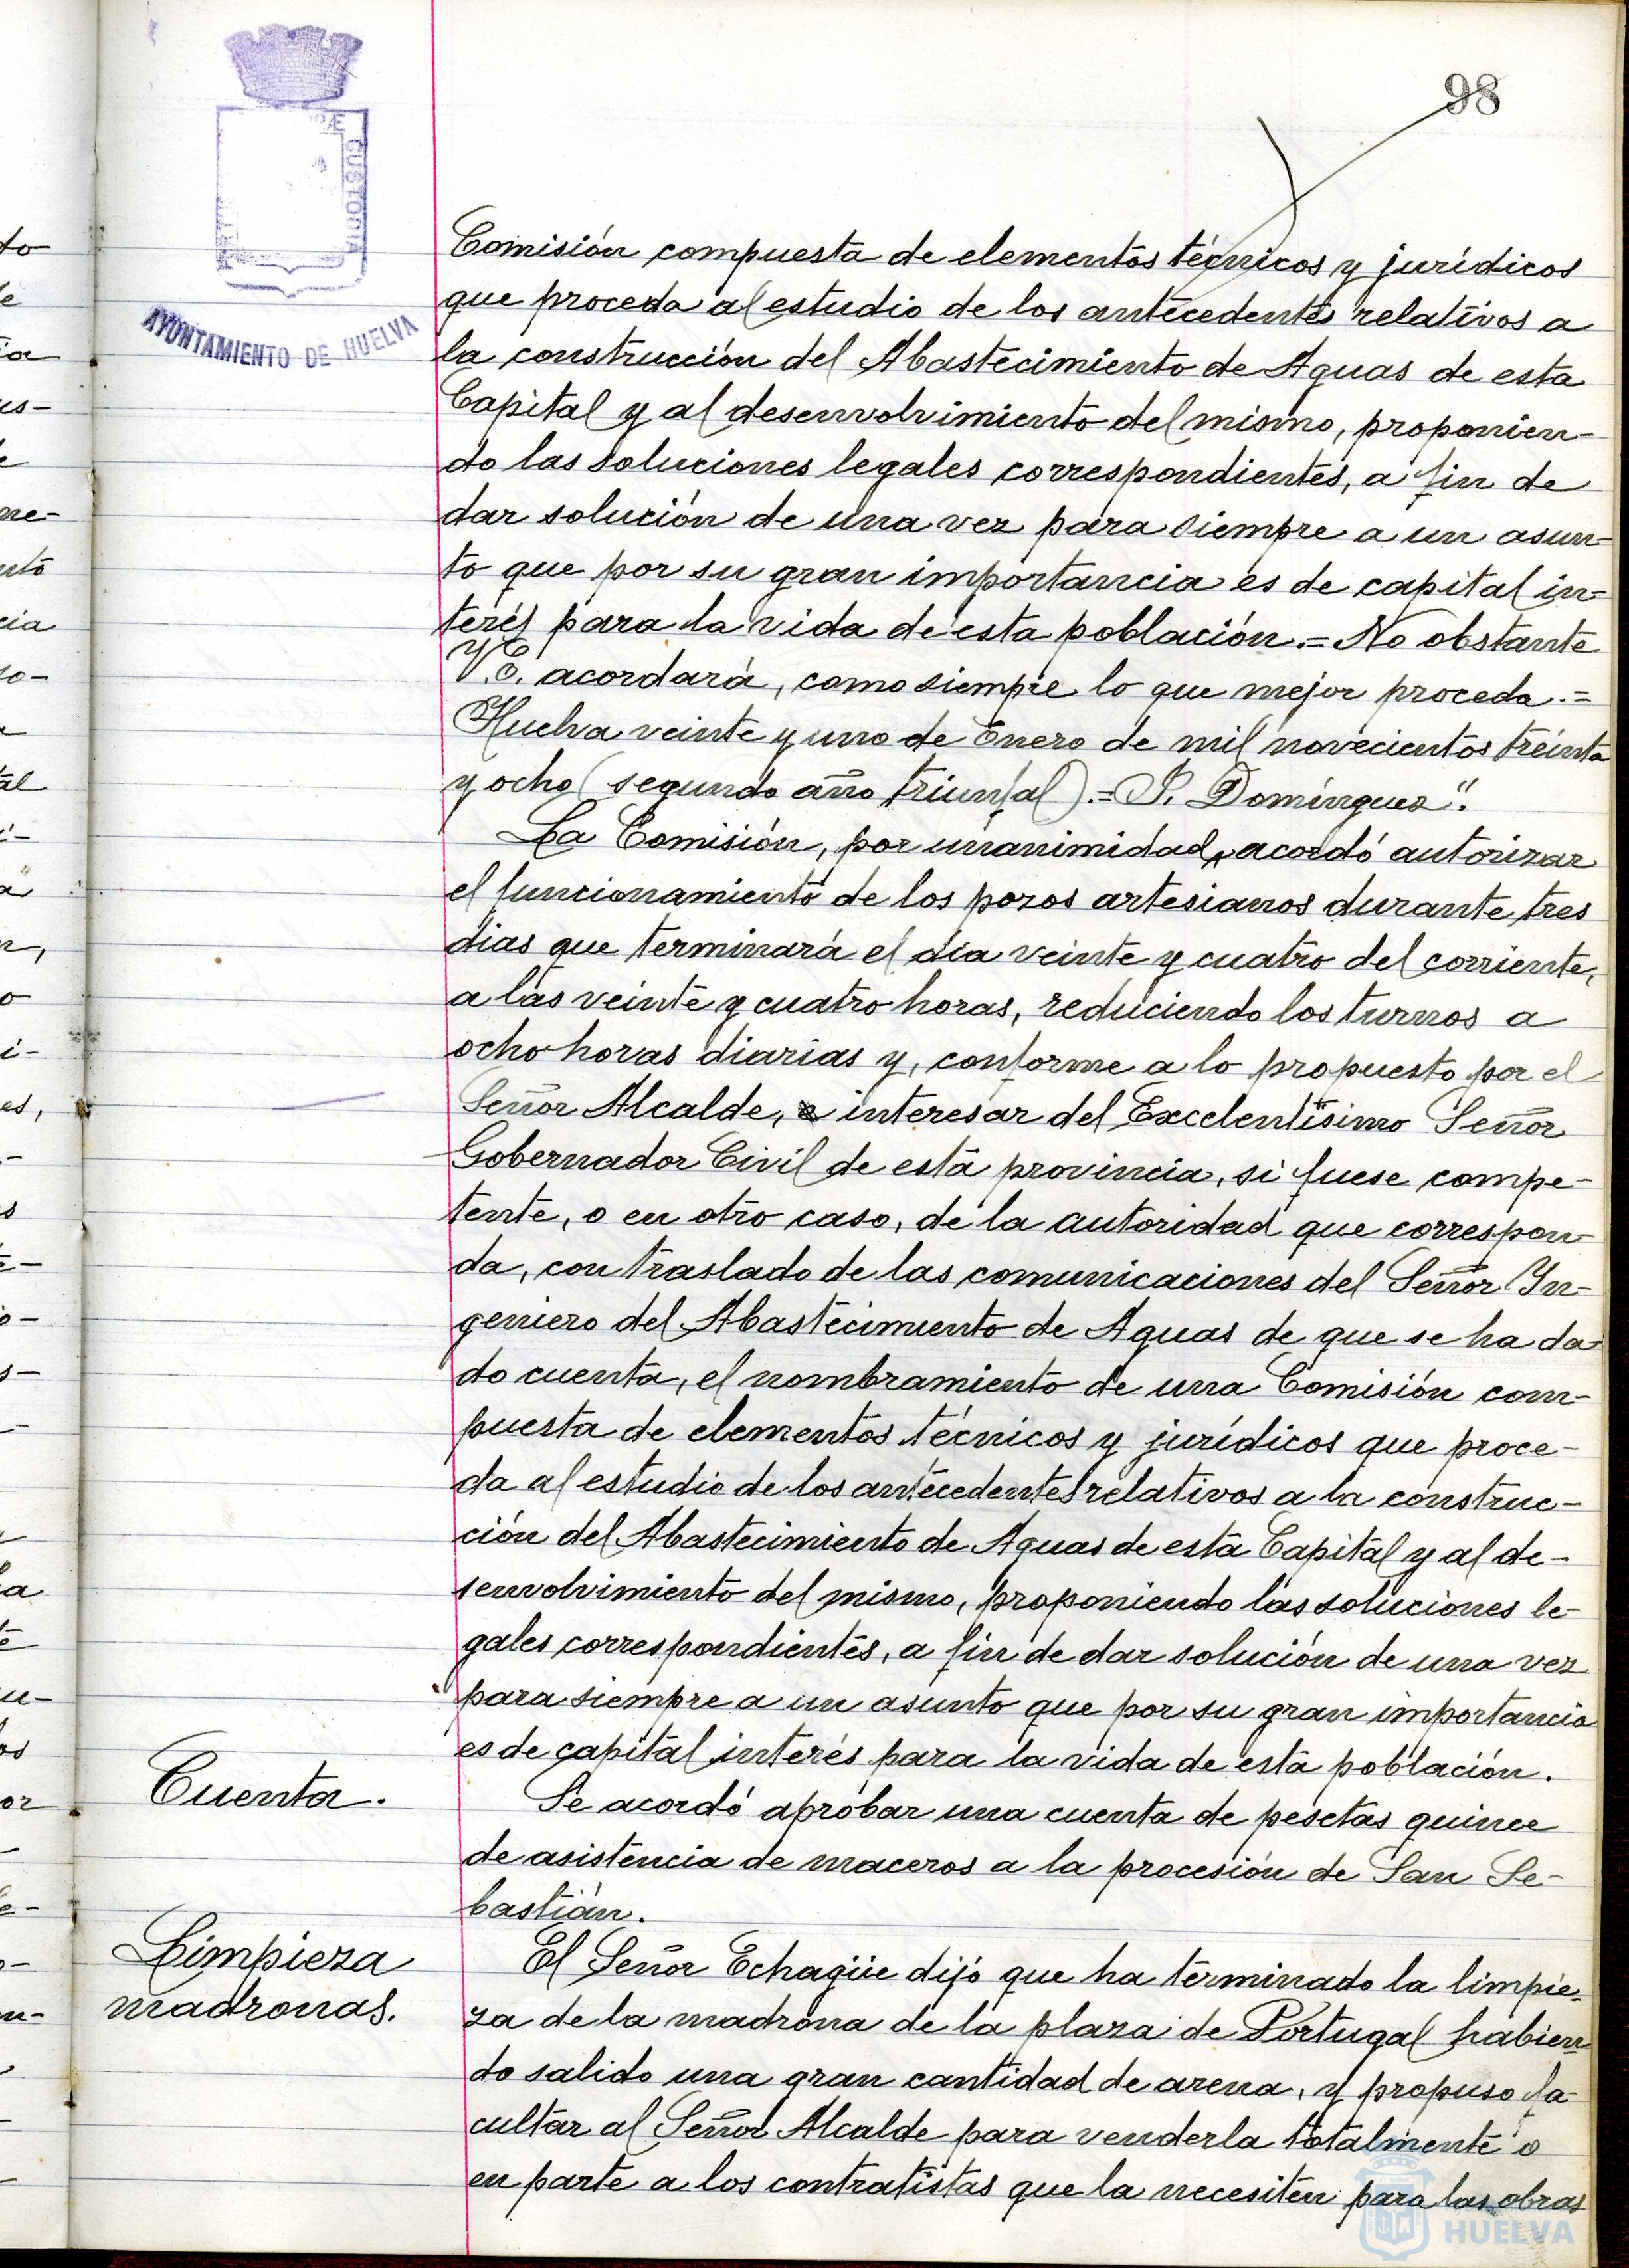 98
CUSTODIA
AYUNTAMIENTO DE HUELVA
Comisión compuesta de elementos técnicos y jurídicos
que proceda al estudio de los antecedentes relativos a
la construcción del Abastecimiento de Aguas de esta
Capital y al desenvolvimiento del mismo, proponien-
do las soluciones legales correspondientes, a fin de
dar solución de una vez para siempre a un asun-
to que por su gran importancia es de capital in-
terés para la vida de esta población.= No obstante
V.E. acordará, como siempre lo que mejor proceda.=
Huelva veinte y uno de Enero de mil novecientos treinta
y ocho (segundo año triunfal).= P. Domínguez".
La Comisión, por unanimidad, acordó autorizar
el funcionamiento de los pozos artesianos durante tres
dias que terminará el día veinte y cuatro del corriente,
a las veinte y cuatro horas, reduciendo los turnos a
ocho horas diarias y, conforme a lo propuesto por el
Señor Alcalde, interesar del Excelentísimo Señor
Gobernador Civil de esta provincia, si fuese compe-
tente, o en otro caso, de la autoridad que correspon-
da, con traslado de las comunicaciones del Señor In-
geniero del Abastecimiento de Aguas de que se ha da-
do cuenta, el nombramiento de una Comisión com-
puesta de elementos técnicos y jurídicos que proce-
da al estudio de los antecedentes relativos a la construc-
ción del Abastecimiento de Aguas de esta Capital y al de-
senvolvimiento del mismo, proponiendo las soluciones le-
gales correspondientes, a fin de dar solución de una vez
para siempre a un asunto que por su gran importancia
es de capital interés para la vida de esta población.
Cuenta.
Se acordó aprobar una cuenta de pesetas quince
de asistencia de maceros a la procesión de San Se-
bastián.
Limpieza
madronas.
El Señor Echagüe dijo que ha terminado la limpie-
za de la madrona de la plaza de Portugal habien-
do salido una gran cantidad de arena, y propuso fa-
cultar al Señor Alcalde para venderla totalmente o
en parte a los contratistas que la necesiten para las obras
HUELVA